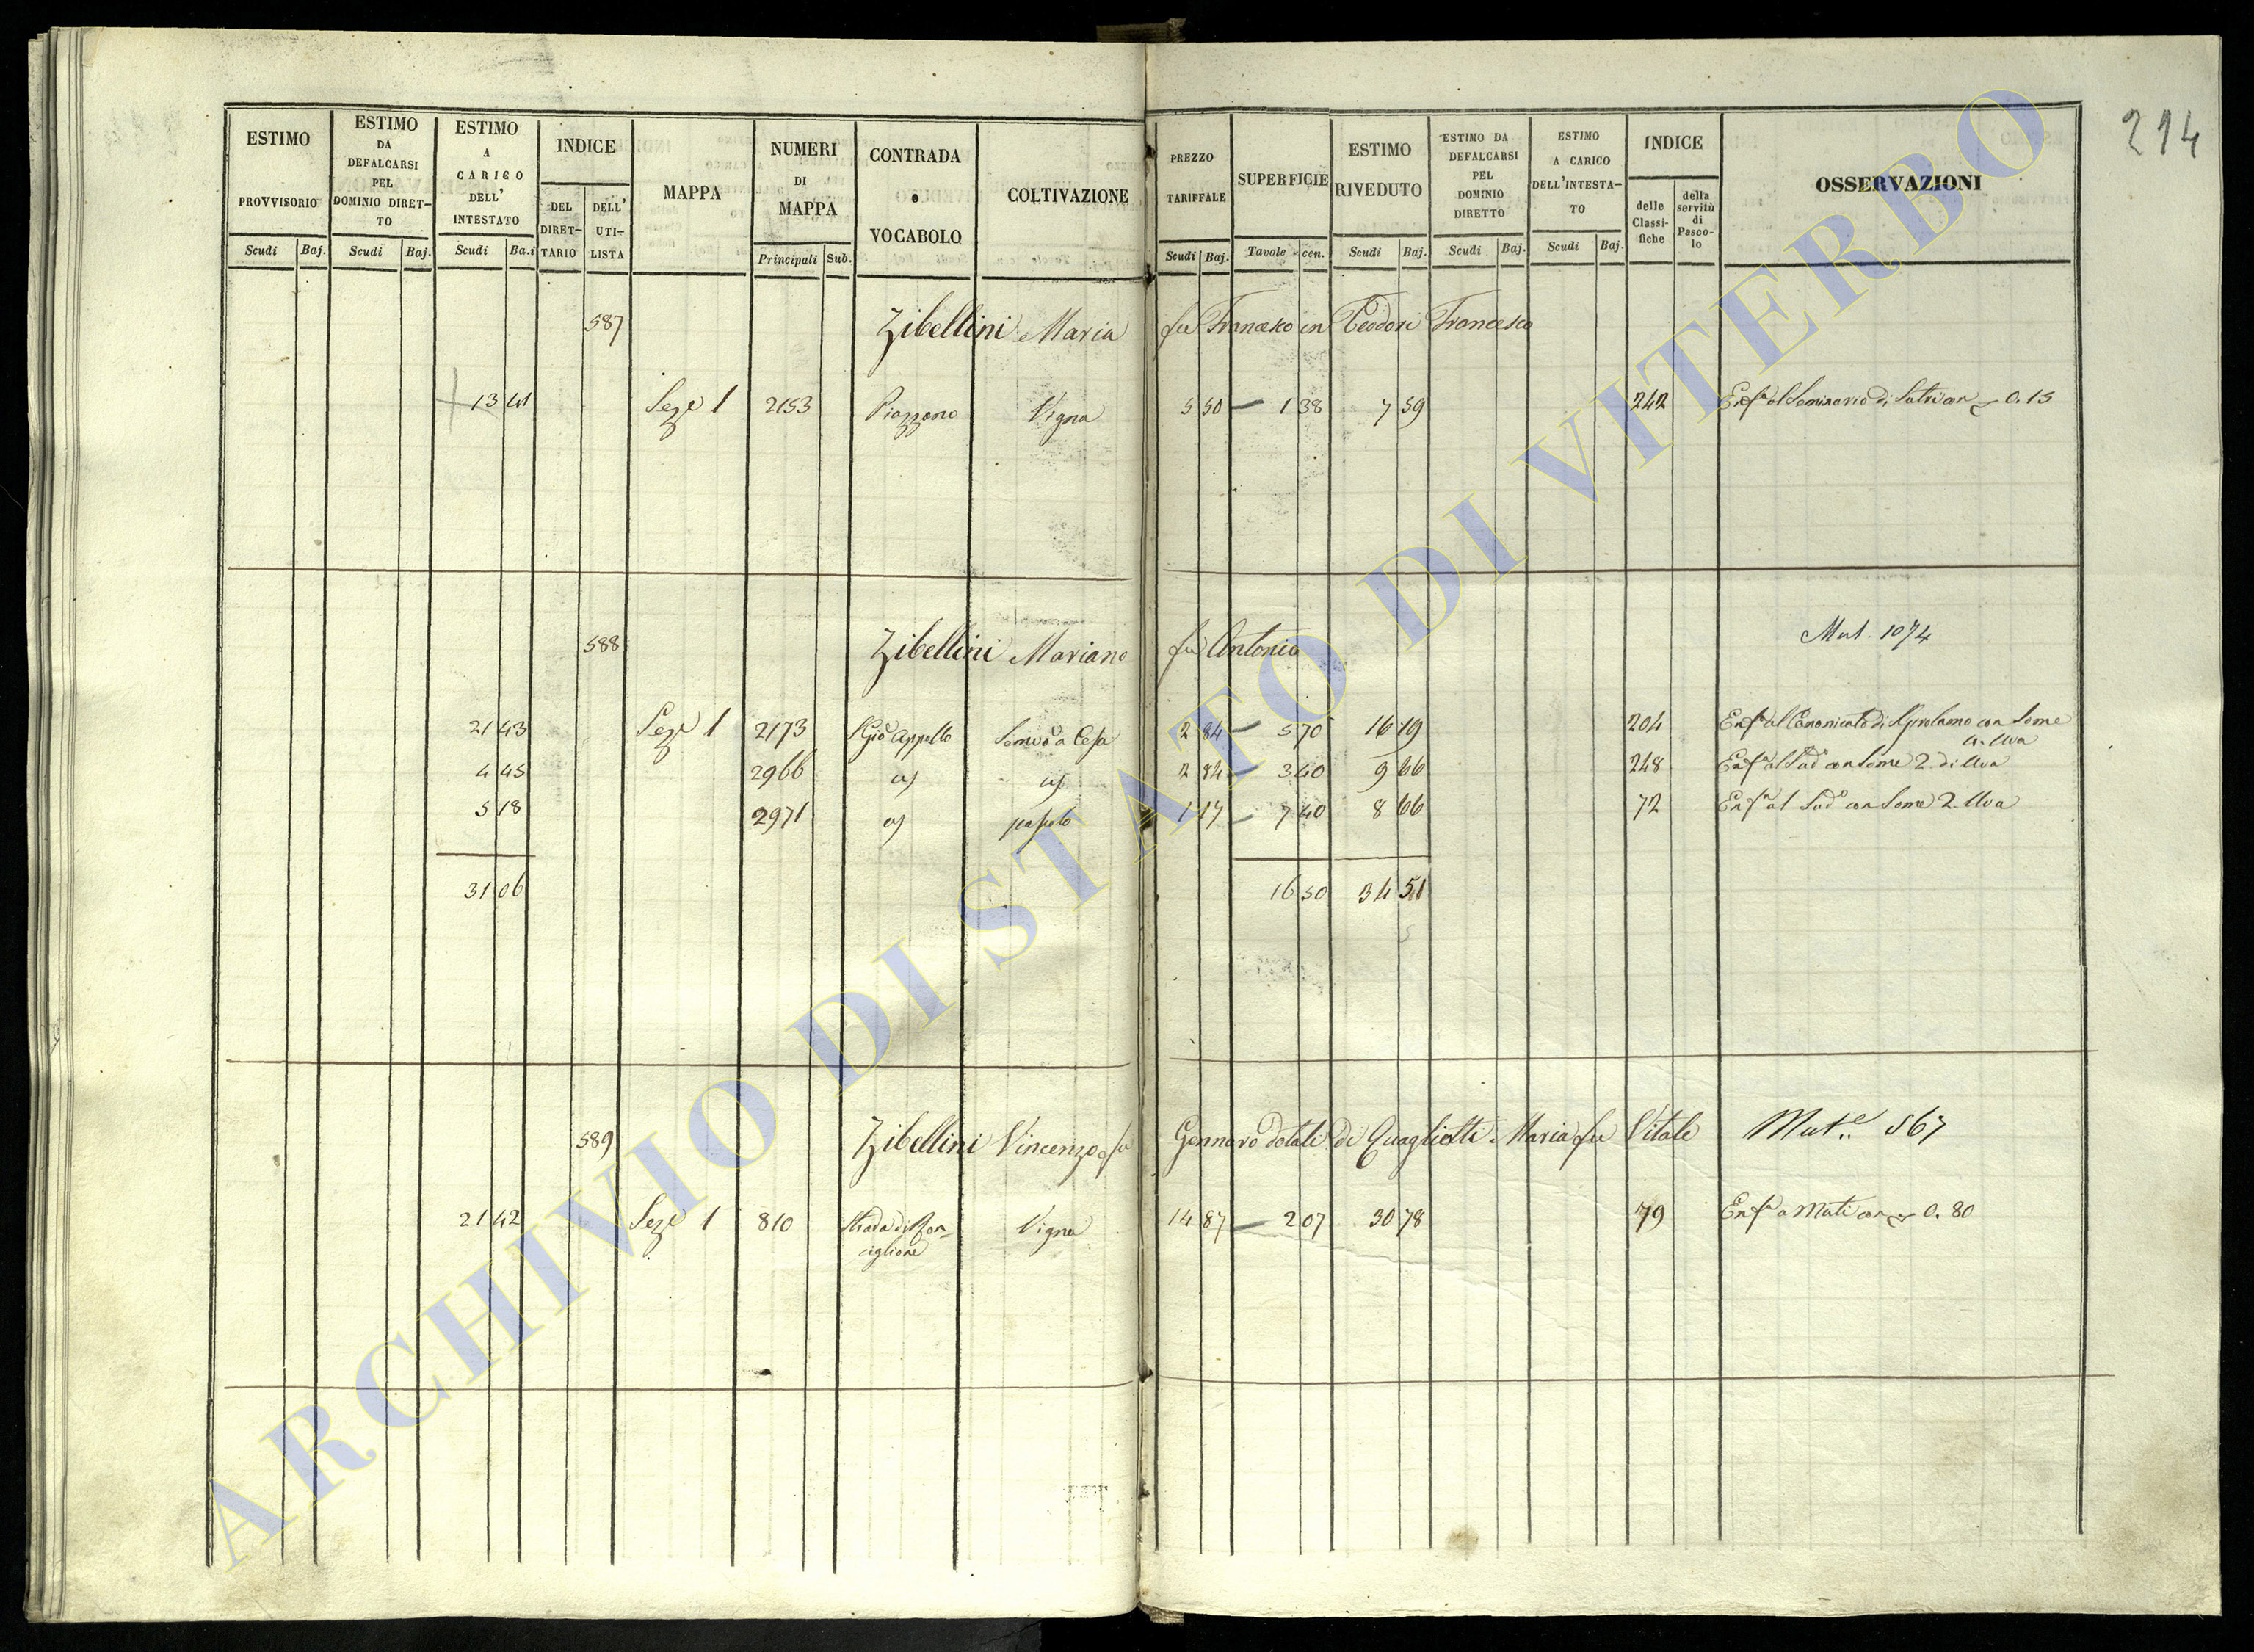 214
ESTIMO PROVVISORIO
ESTIMO DA DEFALCARSI PEL DOMINIO DIRETTO
ESTIMO A CARICO DELL' INTESTATO
INDICE
DEL DIRETTARIO
DELL' UTILISTA
MAPPA
NUMERI DI MAPPA
CONTRADA o VOCABOLO
COLTIVAZIONE
PREZZO TARIFFALE
SUPERFICIE
ESTIMO RIVEDUTO
ESTIMO DA DEFALCARSI PEL DOMINIO DIRETTO
ESTIMO A CARICO DELL'INTESTATO
INDICE
delle Classifiche
della servitù di Pascolo
OSSERVAZIONI
Scudi Baj. Scudi Baj. Scudi Ba.i Principali Sub. Scudi Baj. Tavole cen. Scudi Baj. Scudi Baj. Scudi Baj.
587 Zibellini Maria fu Francesco in Teodori Francesco
13 41 Sez.e 1 2153 Piazzano Vigna 5 50 1 38 7 59 242 Enf.a al Seminario di Sutri con 0.15
588 Zibellini Mariano fu Antonio Mut. 1074
21 43 Sez.e 1 2173 2 84 5 70 16 19 204 Enf.a al Canonicato di con Some
4. Uva
4 45 2966 2 84 3 40 9 66 248 Enf.a al Sud.o con Some 2 di Uva
5 18 2971 pascolo 1 17 7 40 8 66 72 Enf.a al Sud.o con Some 2. Uva
31 06 16 50 34 51
589 Zibellini Vincenzo fu Gennaro dotale di Quagliotti Maria fu Vitale Mut.e 567
21 42 Sez.e 1 810 Strada di Ron- Vigna 14 87 2 07 30 78 79 Enf.a a Muti con 0.80
ciglione
ARCHIVIO DI STATO DI VITERBO